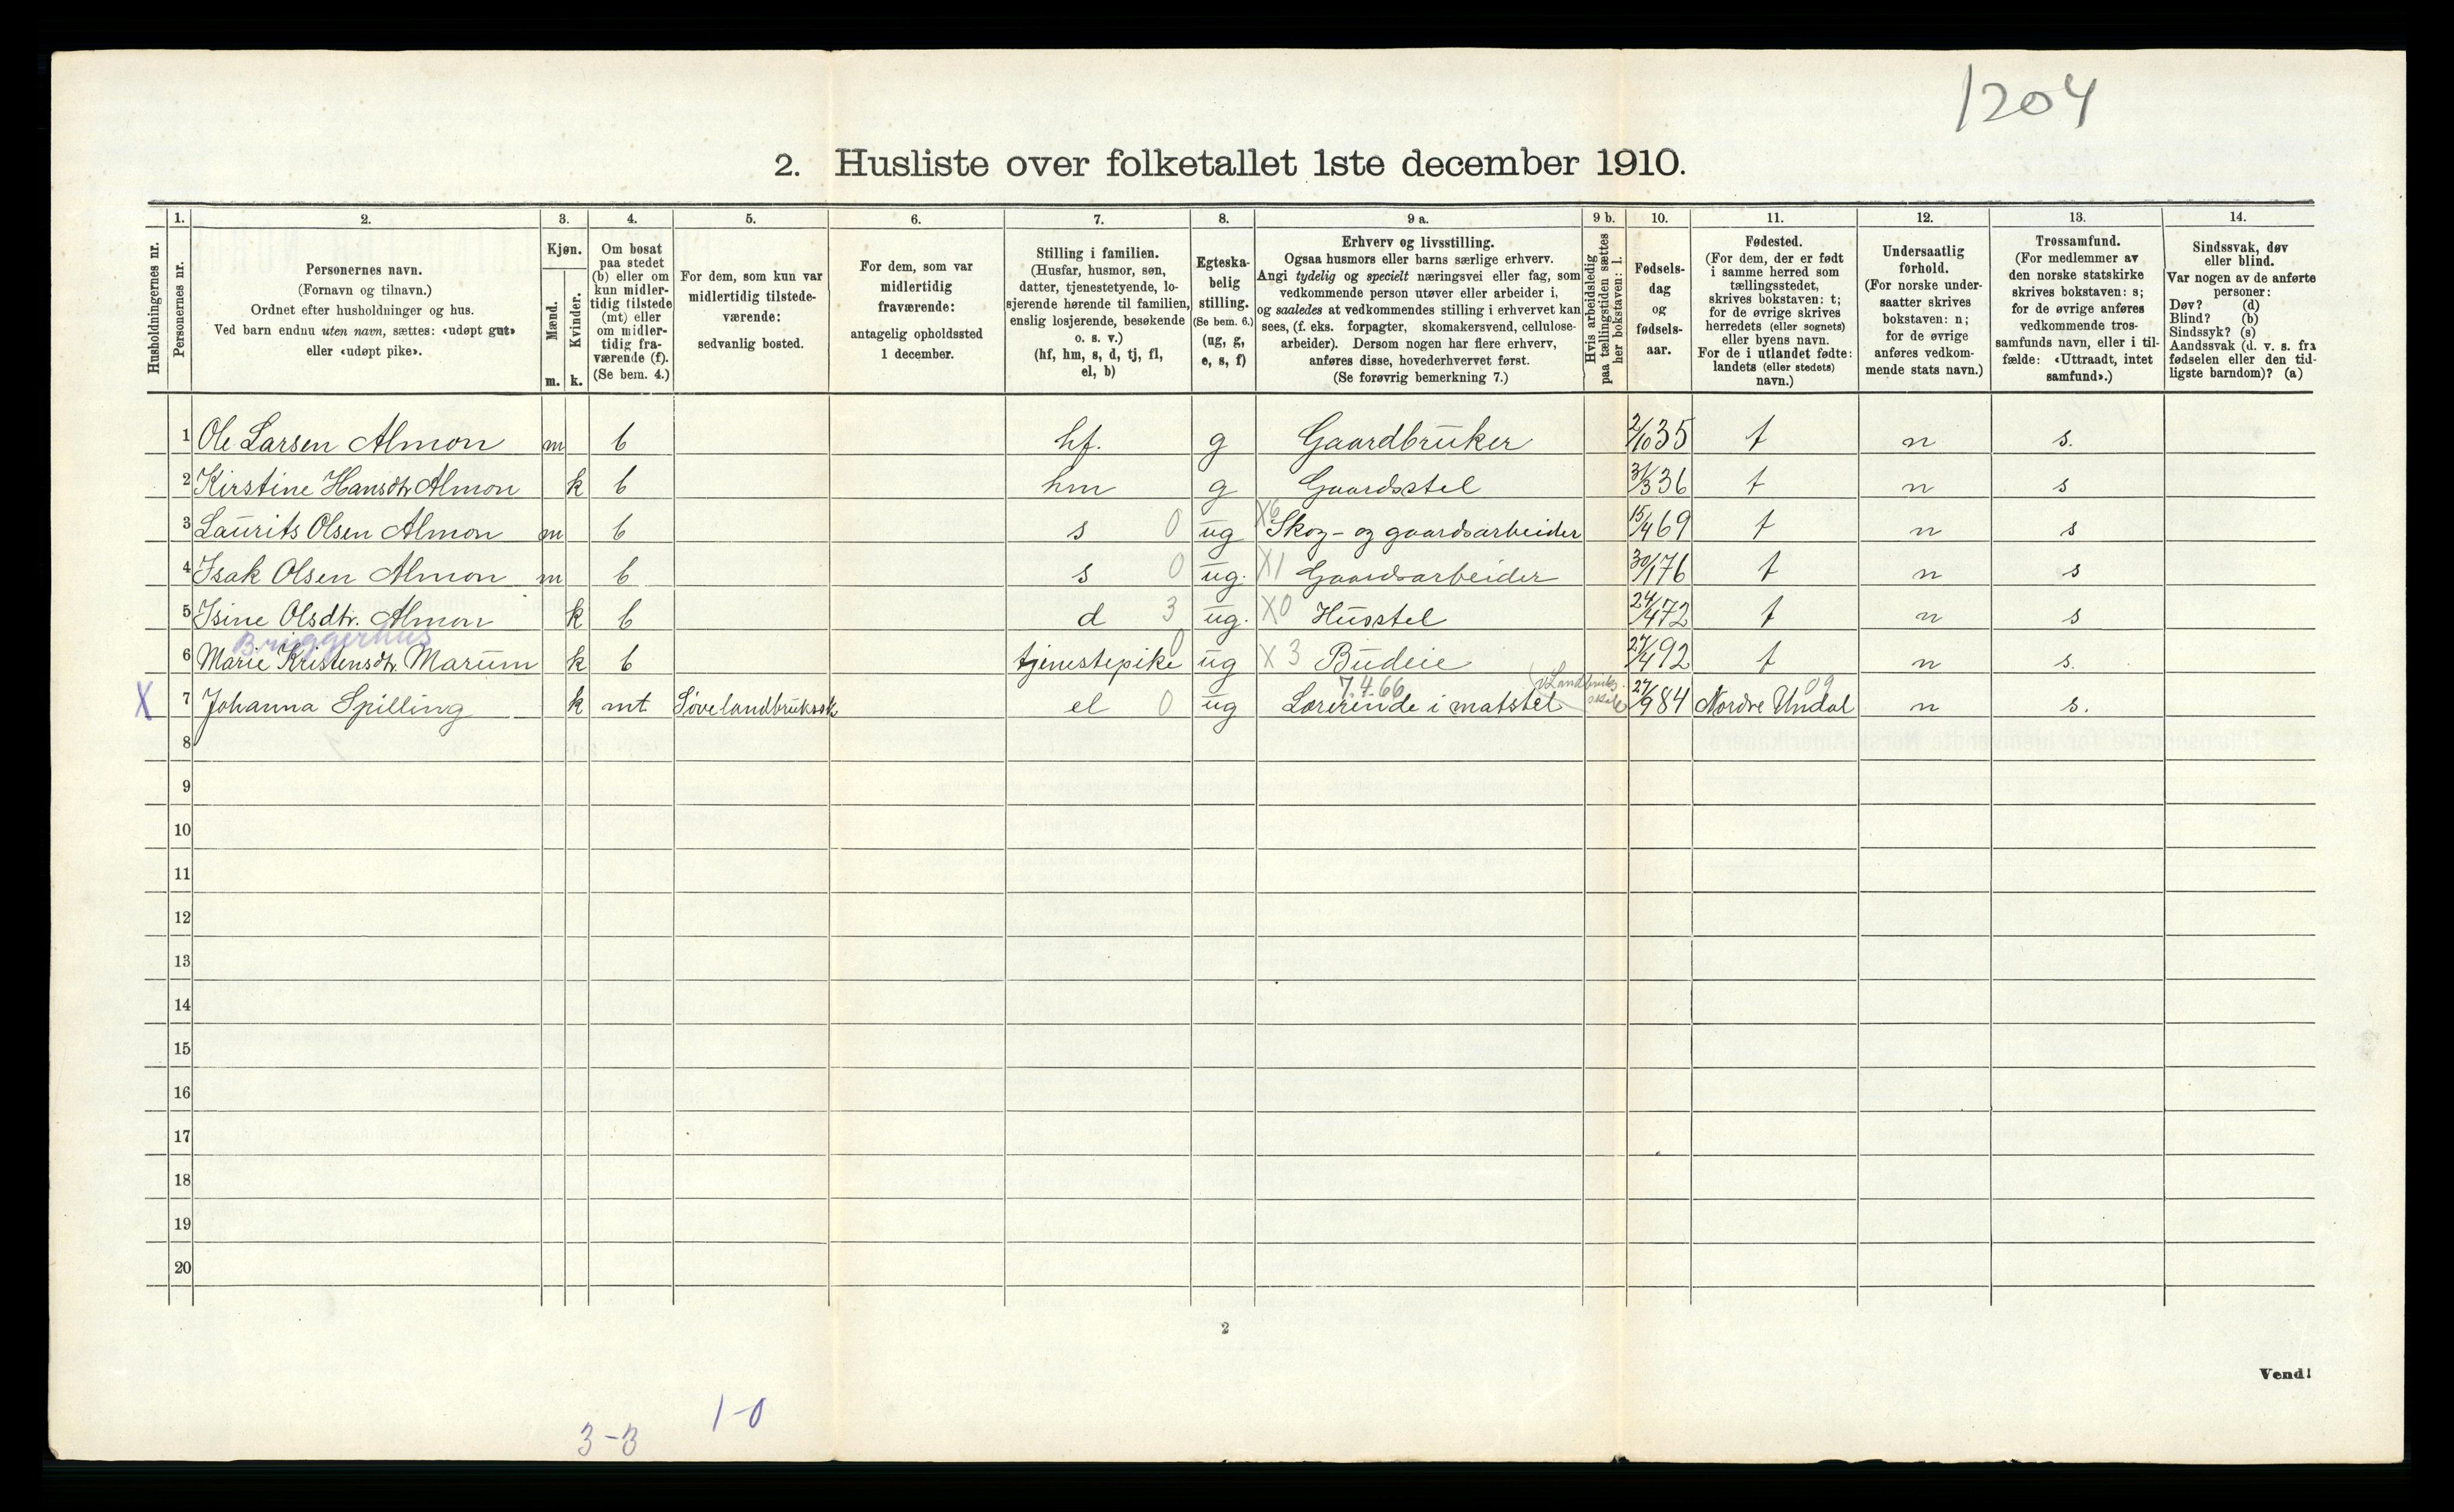 1204
2. Husliste over folketallet 1ste december 1910.
Husholdningernes nr.
1.
Personernes nr.
2.
Personernes navn.
(Fornavn og tilnavn.)
Ordnet efter husholdninger og hus.
Ved barn endnu uten navn, sættes: «udøpt gut»
eller «udøpt pike».
3.
Kjøn.
Mænd.
m.
Kvinder.
k.
4.
Om bosat
paa stedet
(b) eller om
kun midler-
tidig tilstede
(mt) eller
om midler-
tidig fra-
værende (f).
(Se bem. 4.)
5.
For dem, som kun var
midlertidig tilstede-
værende:
sedvanlig bosted.
6.
For dem, som var
midlertidig
fraværende:
antagelig opholdssted
1 december.
7.
Stilling i familien.
(Husfar, husmor, søn,
datter, tjenestetyende, lo-
sjerende hørende til familien,
enslig losjerende, besøkende
o. s. v.)
(hf, hm, s, d, tj, fl,
el, b)
8.
Egteska-
belig
stilling.
(Se bem. 6.)
(ug, g,
e, s, f)
9 a.
Erhverv og livsstilling.
Ogsaa husmors eller barns særlige erhverv.
Angi tydelig og specielt næringsvei eller fag, som
vedkommende person utøver eller arbeider i,
og saaledes at vedkommendes stilling i erhvervet kan
sees, (f. eks. forpagter, skomakersvend, cellulose-
arbeider). Dersom nogen har flere erhverv,
anføres disse, hovederhvervet først.
(Se forøvrig bemerkning 7.)
9 b.
Hvis arbeidsledig
paa tællingstiden sættes
her bokstaven: l.
10.
Fødsels-
dag
og
fødsels-
aar.
11.
Fødested.
(For dem, der er født
i samme herred som
tællingsstedet,
skrives bokstaven: t;
for de øvrige skrives
herredets (eller sognets)
eller byens navn.
For de i utlandet fødte:
landets (eller stedets)
navn.)
12.
Undersaatlig
forhold.
(For norske under-
saatter skrives
bokstaven: n;
for de øvrige
anføres vedkom-
mende stats navn.)
13.
Trossamfund.
(For medlemmer av
den norske statskirke
skrives bokstaven: s;
for de øvrige anføres
vedkommende tros-
samfunds navn, eller i til-
fælde: «Uttraadt, intet
samfund».)
14.
Sindssvak, døv
eller blind.
Var nogen av de anførte
personer:
Døv? (d)
Blind? (b)
Sindssyk? (s)
Aandssvak (d. v. s. fra
fødselen eller den tid-
ligste barndom)? (a)
1 Ole Larsen Almon m b hf. g Gaardbruker 2/10 35 t n s.
2 Kirstine Hansdtr Almon k b hm g Gaardsstel 31/3 36 t n s
3 Laurits Olsen Almon m b s 0 ug X6 Skog- og gaardsarbeider 15/4 69 t n s
4 Isak Olsen Almon m b s 0 ug. X1 Gaardsarbeider 30/1 76 t n s
5 Isine Olsdtr. Almon k b d 3 ug. X0 Husstel 24/4 72 t n s
Bryggerhus
6 Marie Kristensdtr. Marum k b tjenestepike 0 ug X 3 Budeie 27/4 92 t n s.
7.4.66 v. Landbruks- skole 09
X 7 Johanna Spilling k mt Søve landbrukssk el 0 ug Lærerinde i matstel 27/9 84 Nordre Undal n s.
8
9
10
11
12
13
14
15
16
17
18
19
20
2
Vend!
1-0
3-3